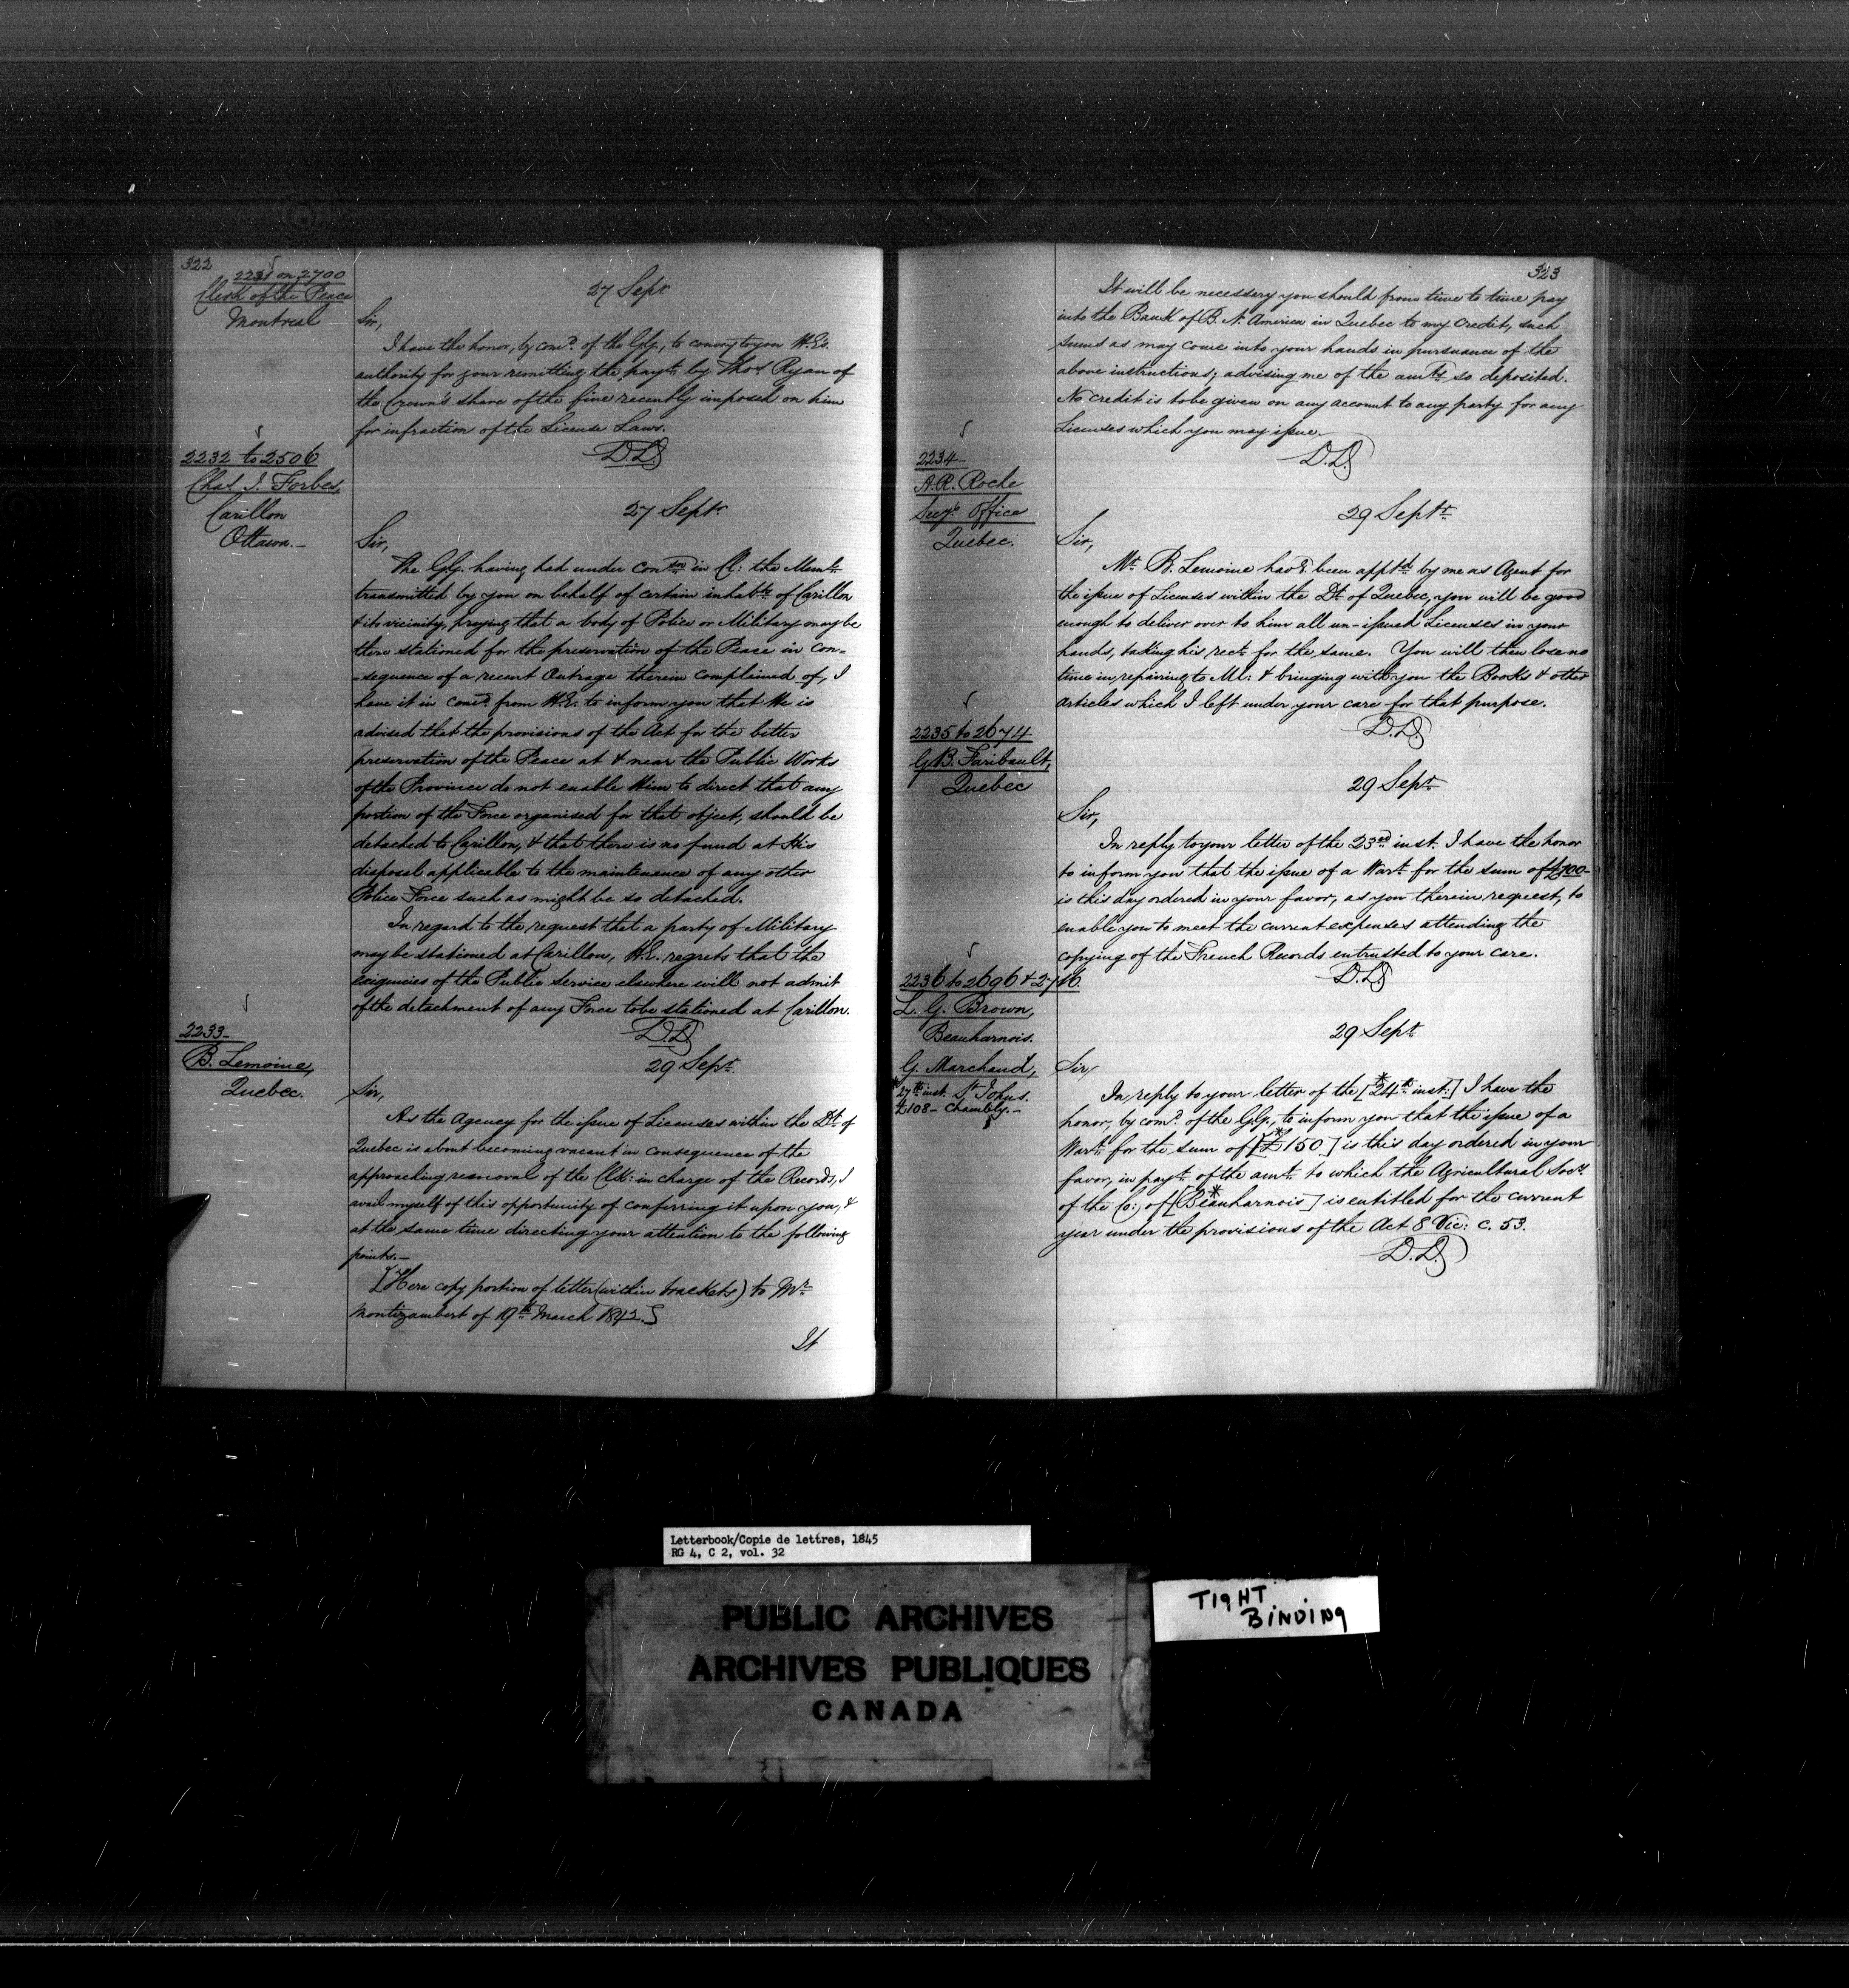 322
2231 on 2700
Clerk of the Peace
Montreal
27 Sept.
Sir,
I have the honor, by comd. of the G.G., to convey to you H.E's.
authority for your remitting the payt. by Thos. Ryan of
the Crown's share of the fine recently imposed on him
for infraction of the License Laws.
D.D.
2232 to 2506
Chas. J. Forbes,
Carillon
Ottawa.—
27 Septr.
Sir,
The G.G. having had under conon. in Cl: the Meml.
transmitted by you on behalf of certain inhabts. of Carillon
& its vicinity, praying that a body of Police or Military may be
there stationed for the preservation of the Peace in con=
=sequence of a recent Outrage therein complained of, I
have it in comd. from H.E. to inform you that He is
advised that the provisions of the Act for the better
preservation of the Peace at & near the Public Works
of the Province do not enable Him to direct that any
portion of the Force organised for that object, should be
detached to Carillon, & that there is no fund at His
disposal applicable to the maintenance of any other
Police Force such as might be so detached.
In regard to the request that a party of Military
may be stationed at Carillon, H.E. regrets that the
exigencies of the Public Service elsewhere will not admit
of the detachment of any Force to be stationed at Carillon.
D.D
2233—
B. Lemoine,
Quebec.
29 Sept.
Sir,
As the Agency for the issue of Licenses within the Dt. of
Quebec is about becoming vacant in consequence of the
approaching removal of the Clk: in charge of the Records, I
avail myself of this opportunity of conferring it upon you, &
at the same time directing your attention to the following
points.—
[Here copy portion of letter (within brackets) to Mr.
Montizambert of 19th March 1842.]
It
323
It will be necessary you should from time to time pay
into the Bank of B. N. America in Quebec to my Credit, such
sums as may come into your hands in pursuance of the
above instructions; advising me of the amts. so deposited.
No credit is to be given on any account to any party for any
Licenses which you may issue.
D.D.
2234—
A.R. Roche
Secy's. Office
Quebec.
29 Septr.
Sir,
Mr. B. Lemoine havg. been apptd. by me as Agent for
the issue of Licenses within the Dt. of Quebec, you will be good
enough to deliver over to him all un-issued Licenses in your
hands, taking his rect. for the same. You will then lose no
time in repairing to Ml: & bringing with you the Books & other
articles which I left under your care for that purpose.
D.D.
2235 to 2674
G.B. Faribault,
Quebec
29 Sept.
Sir,
In reply to your letter of the 23rd. inst. I have the honor
to inform you that the issue of a Wart. for the sum of £700—
is this day ordered in your favor, as you therein request, to
enable you to meet the current expenses attending the
copying of the French Records entrusted to your care.
D.D.
2236 to 2696 & 2716.
L. G. Brown,
Beauharnois.
G. Marchand,
*27th inst. St Johns.
£108— Chambly.—
29 Sept.
Sir,
In reply to your letter of the [*24th. inst:] I have the
honor, by comd. of the G.G., to inform you that the issue of a
Wart. for the sum of [*£150.] is this day ordered in your
favor, in payt. of the amt. to which the Agricultural Socy.
of the Co: of [*Beauharnois] is entitled for the current
year under the provisions of the Act 8 Vic: c. 53.
D.D.
Letterbook/Copie de lettres, 1845
RG 4, C 2, vol. 32
PUBLIC ARCHIVES
ARCHIVES PUBLIQUES
CANADA
TIGHT
BINDING